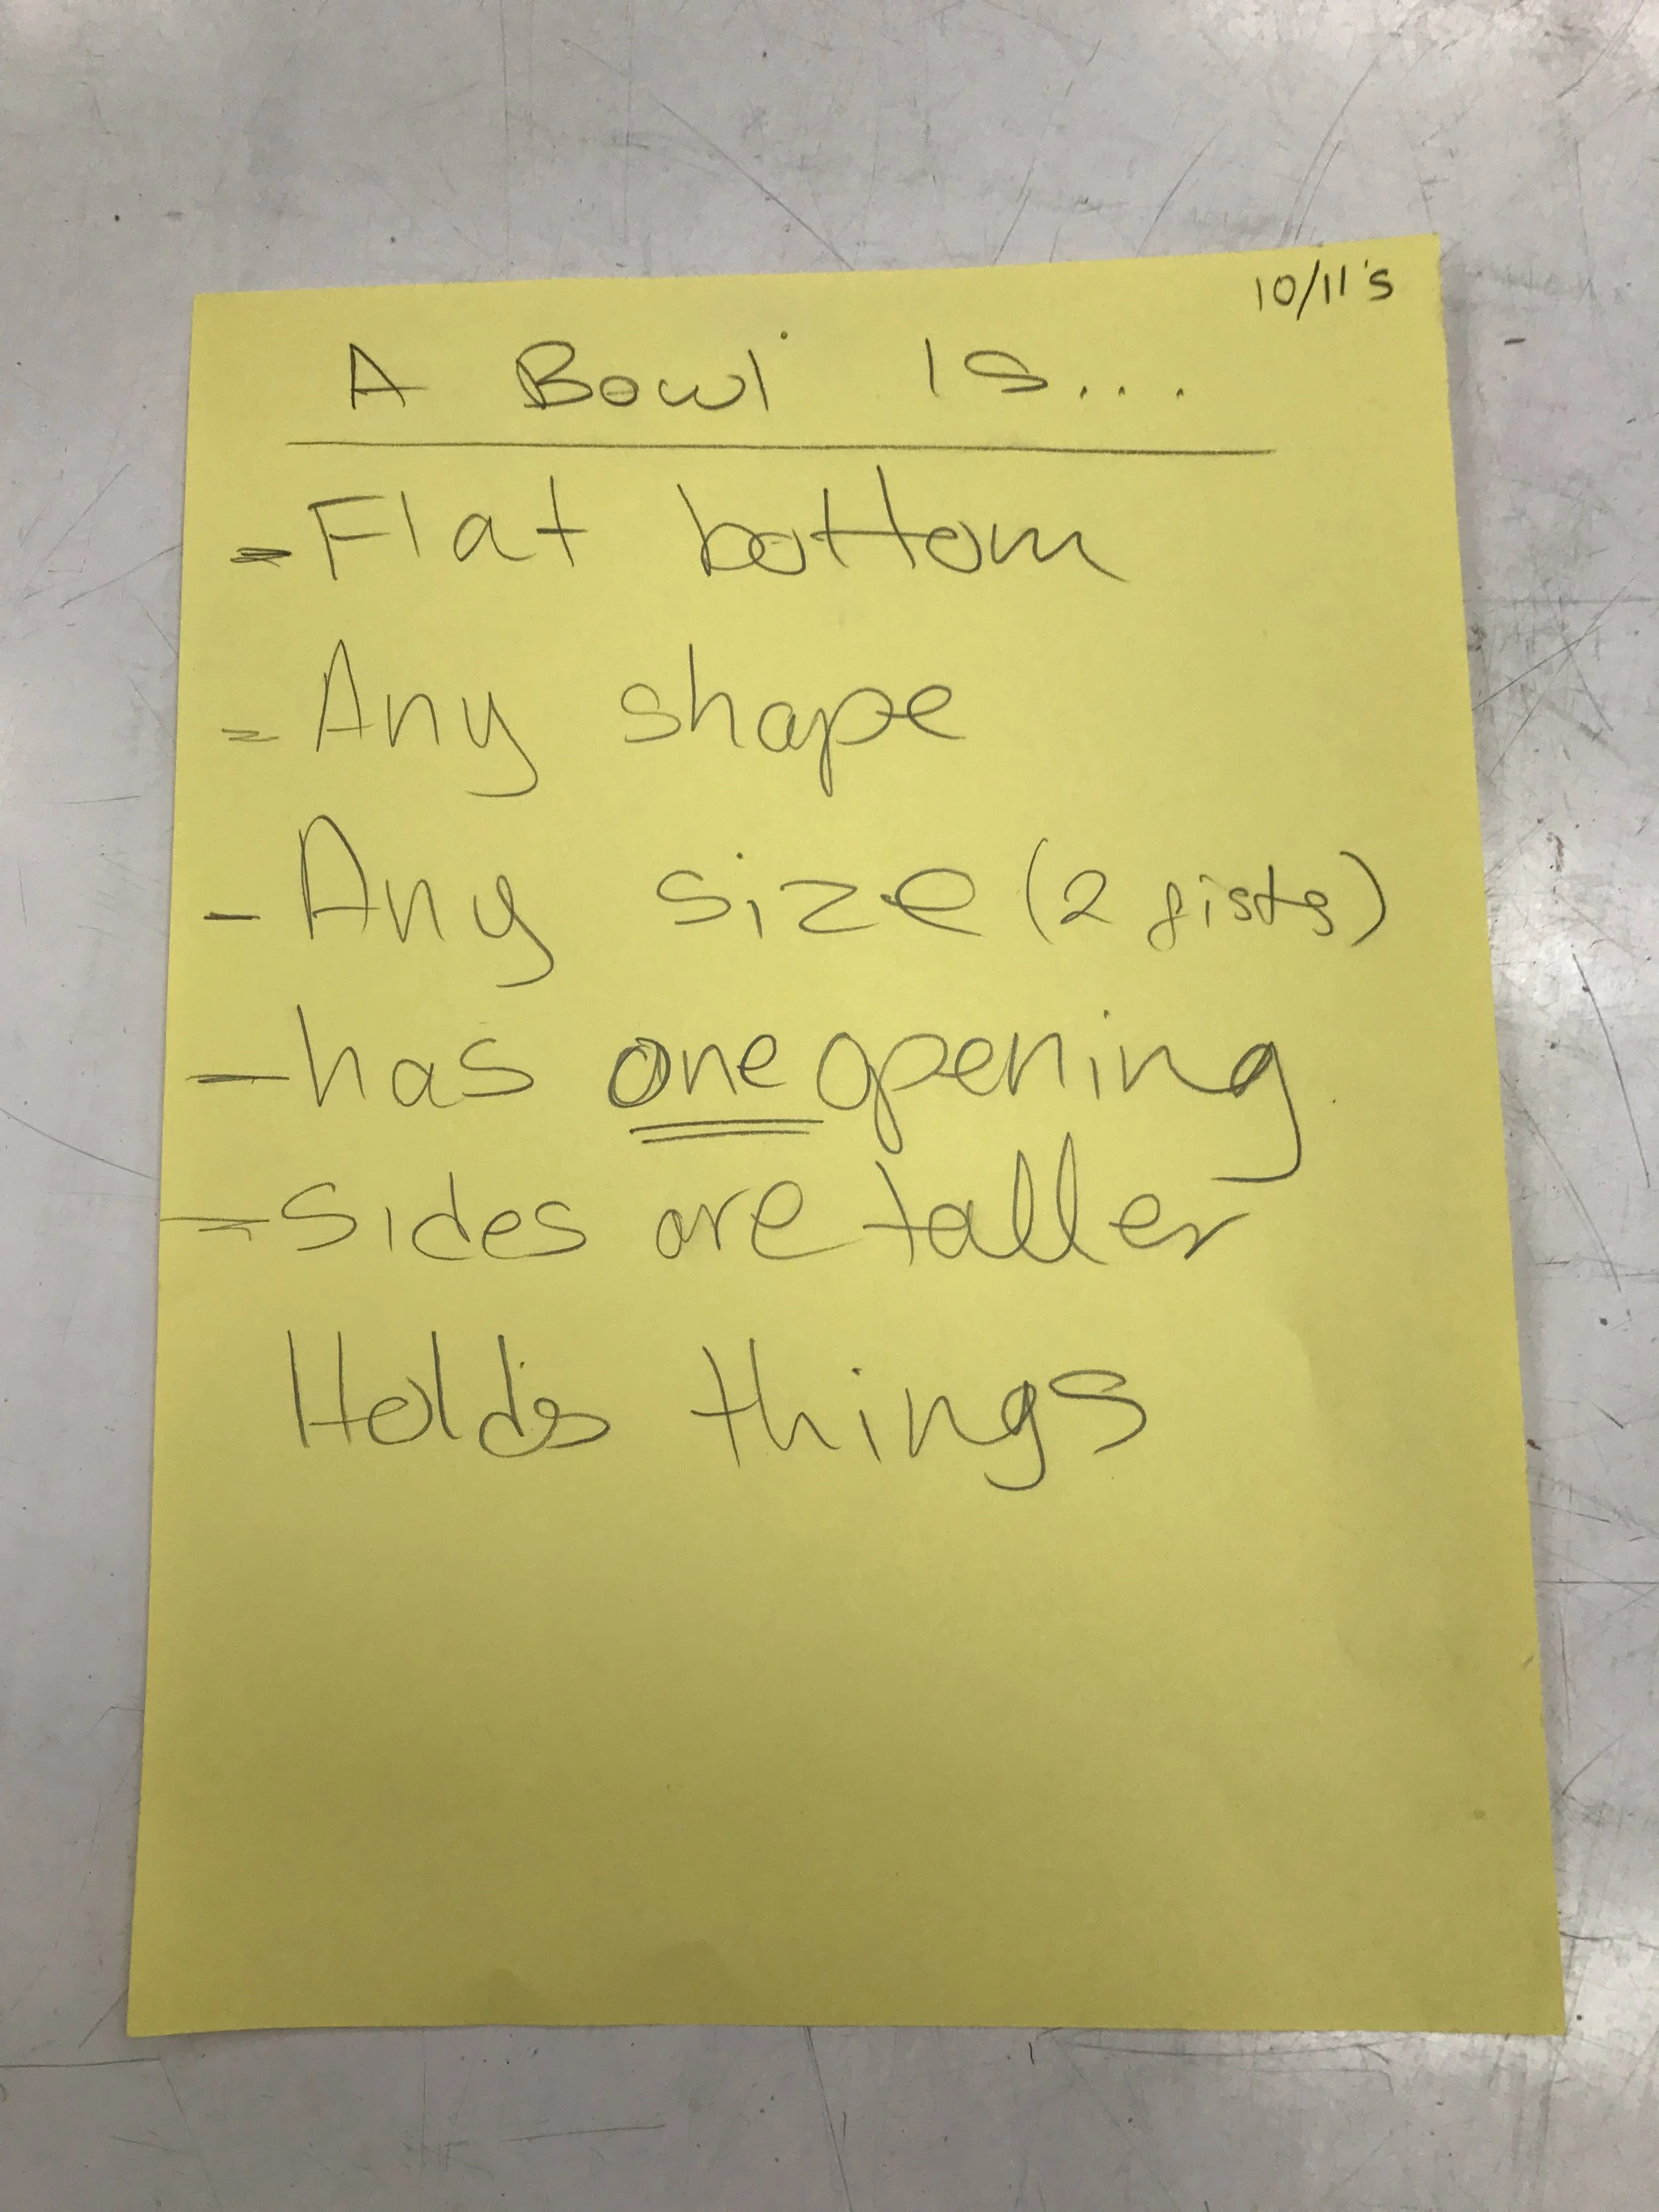 10/11's
A Bowl is...
- Flat bottom
- Any shape
- Any size (2 fists)
- has one opening
- sides are taller
Holds things